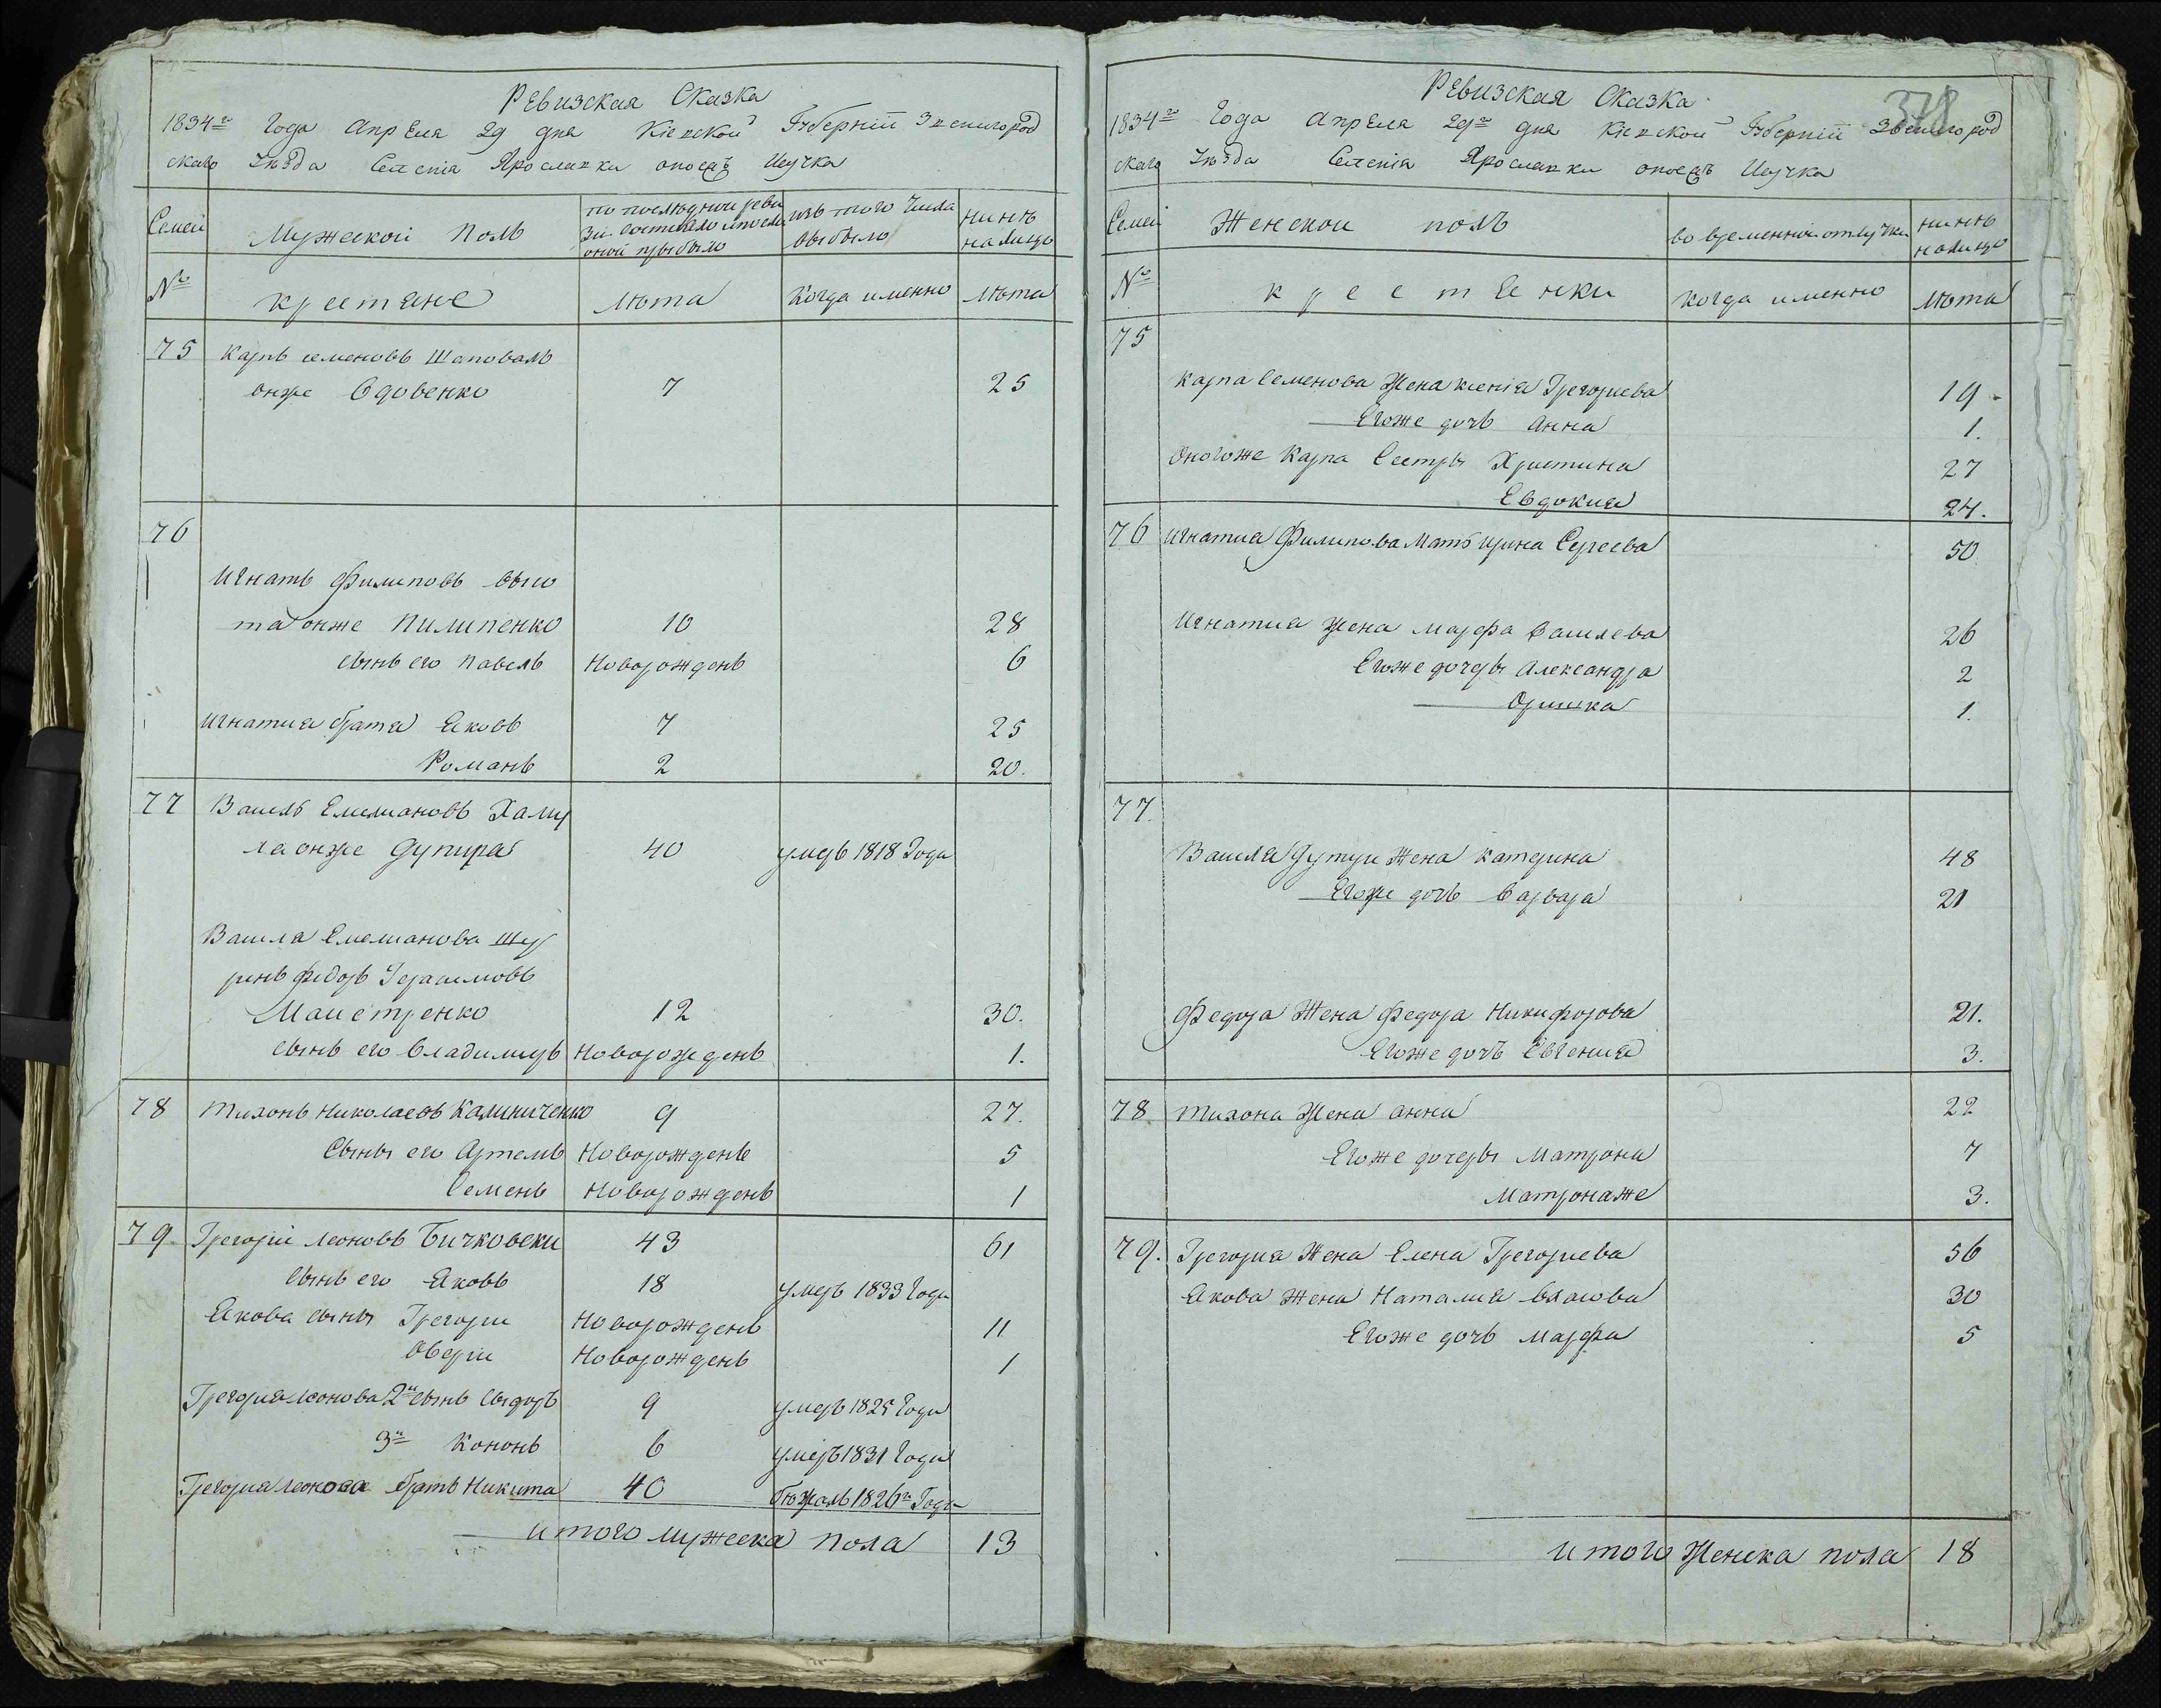 Ревизская Сказка
1834го Года Апреля 29 дня Кіевской Губерніи Звенигород
скаго уѣзда Селенія Ярославки
Семеи Мужескои Полъ по последнеи реви изъ того Числа нинѣ
зіи состояло и после выбыло на лицо
оной прибыло
№ крестяне лѣта Когда именно лѣта
75 Карпъ семеновъ Шаповалъ
онже Вдовенко 7 25
76
Игнатъ Филиповъ
онже Пилипенко 10 28
сынъ его Павелъ Новорожденъ 6
Игнатия братя Яковъ 7 25
Романъ 2 20.
77 Василь Емелиановъ
онже 40 умеръ 1818 Года
Василя Емелианова Шу
ринъ Федоръ Герасимовъ
Маистренко 12 30.
сынъ его Владимиръ Новорожденъ 1.
78 Тихонъ Николаевъ Калиниченко 9 27.
Сыны его Артемъ Новорожденъ 5
Семенъ Новорожденъ 1
79 Грегорій Леоновъ Бичковски 43 61
Сынъ его Яковъ 18 умеръ 1833 Года
Якова сыны Грегори Новорожденъ 11
Овери Новорожденъ 1
Грегория Леонова 2й сынъ Сыдоръ 9 умеръ 1825 Года
3й Кононъ 6 умеръ 1831 Года
Грегория Леонова братъ Никита 40 бѣжалъ 1826го Года
итого мужеска пола 13
378
Ревизская Сказка
1834го Года Апреля 29го дня Кіевской Губерніи Звенигород
скаго уѣзда Селенія Ярославки
Семеи Женскои полъ во временнои отлучки нинѣ
на лицо
№ крестянки когда именно лѣта
75
Карпа Семенова Жена ксенія Грегориева 19
Егоже дочь Анна 1.
Оногоже Карпа Сестры Христина 27
Евдокия 24.
76 Игнатиа Филипова Мать ирина Сергеева 50
Игнатиа жена марфа Василева 26
Егоже дочеры Александра 2
Оришка 1.
77.
Василя жена катерина 48
Егоже дочь варвара 21
Федора Жена Федора Никифорова 21.
Егоже дочъ Евгения 3.
78 Тихона Жена анна 22
Егоже дочеры Матрона 7
Матронаже 3.
79. Грегория Жена Елена Грегориева 56
Якова Жена Наталия власова 30
Егоже дочъ марфа 5
итого Женска пола 18